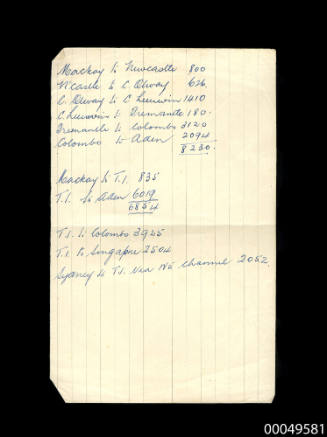 Mackay to Newcastle 800
N'castle to C. Otway 626.
C. Otway to C Leeuwin 1410
C. Leeuwin to Fremantle 180.
Fremantle to Colombo 3120
Colombo to Aden 2094
8230.
Mackay to T.I. 835
T.I. to Aden 6019
6854
T.I. to Colombo 3925
T.I. to Singapore 2504
Sydney to T.I. via NE channel 2052.
00049581